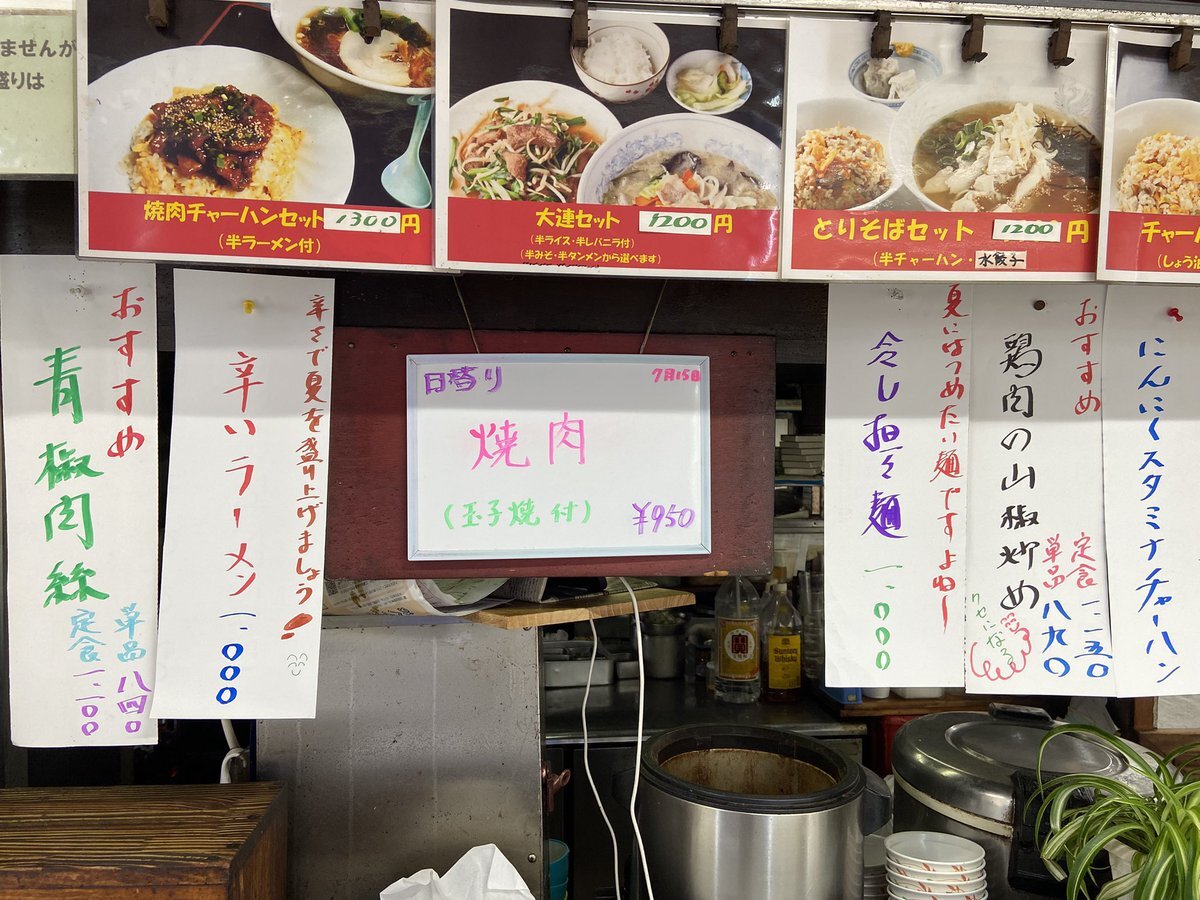 ませんが
盛りは
焼肉チャーハンセット 1300円
(半ラーメン付)
大連セット 1200円
(半ライス・半レバニラ付)
(半みそ・半タンメンから選べます)
とりそばセット 1200円
(半チャーハン・水餃子)
チャー
(しょう油
おすすめ
青椒肉絲
単品 八四〇
定食 一、一〇〇
辛さで夏を盛り上げましょう!
辛いラーメン 一、〇〇〇
日替り
7月15日
焼肉
(玉子焼付)
¥950
夏にはつめたい麺ですよねー
冷し担々麺 一、〇〇〇
おすすめ
鶏肉の山椒炒め
定食 一、一五〇
単品 八九〇
クセになる
にんにくスタミナチャーハン
Suntory
Whisky